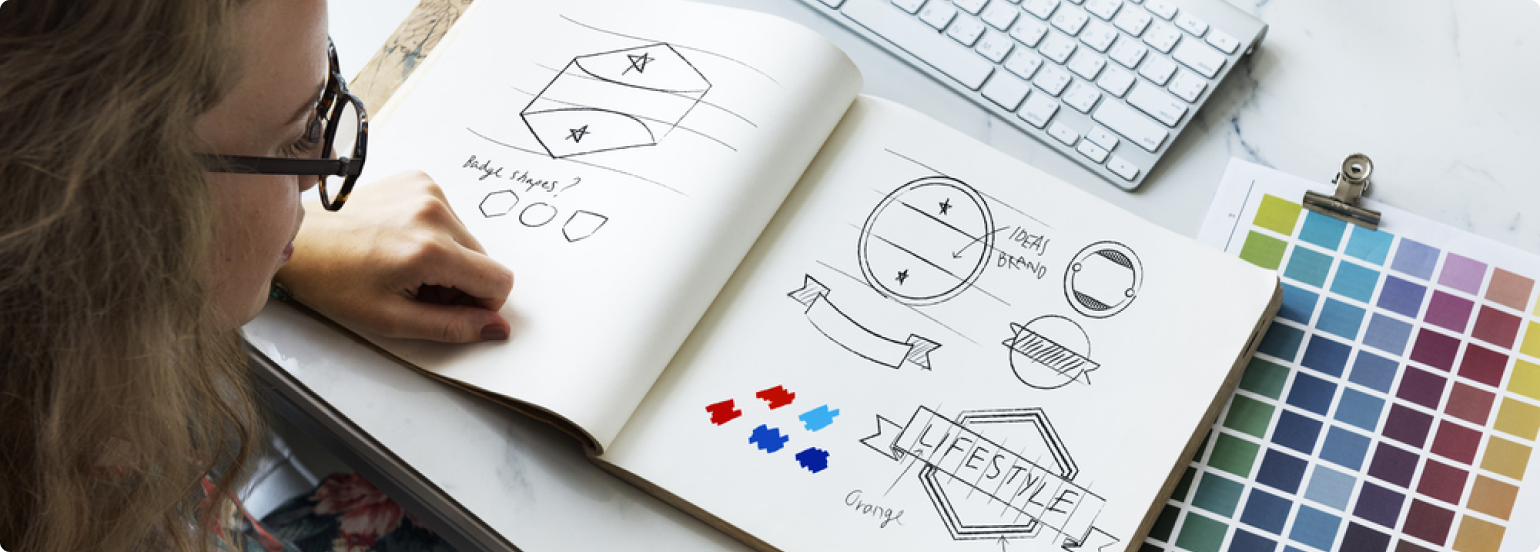 Badge shapes?
IDEAS
BRAND
LIFESTYLE
Orange